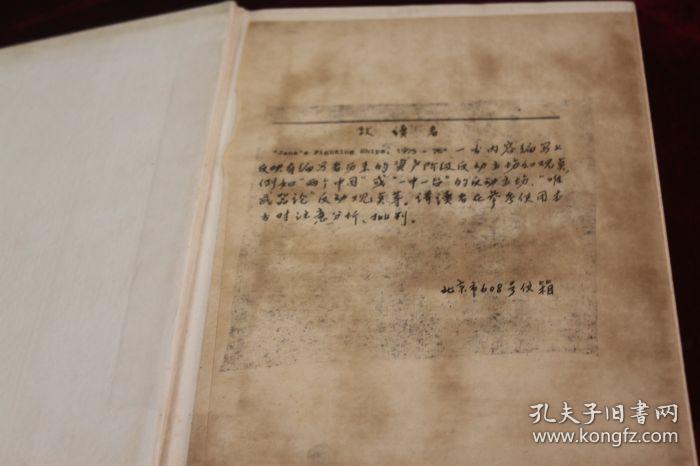 致读者
"Jane's Fighting Ships, 1975-76" 一书内容编写上
反映有编写者历来的资产阶级反动立场和观点,
例如"两个中国"或"一中一台"的反动立场,"唯
武器论"反动观点等。请读者在参考使用本
书时注意分析、批判。
北京市608号信箱
孔夫子旧书网
www.kongfz.com